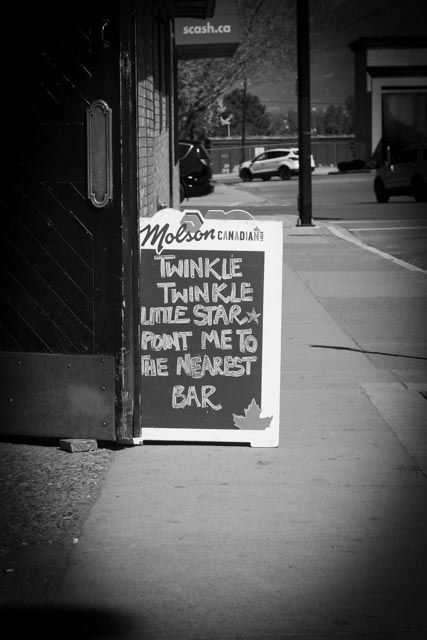 scash.ca
Molson CANADIAN
TWINKLE
TWINKLE
LITTLE STAR
POINT ME TO
THE NEAREST
BAR